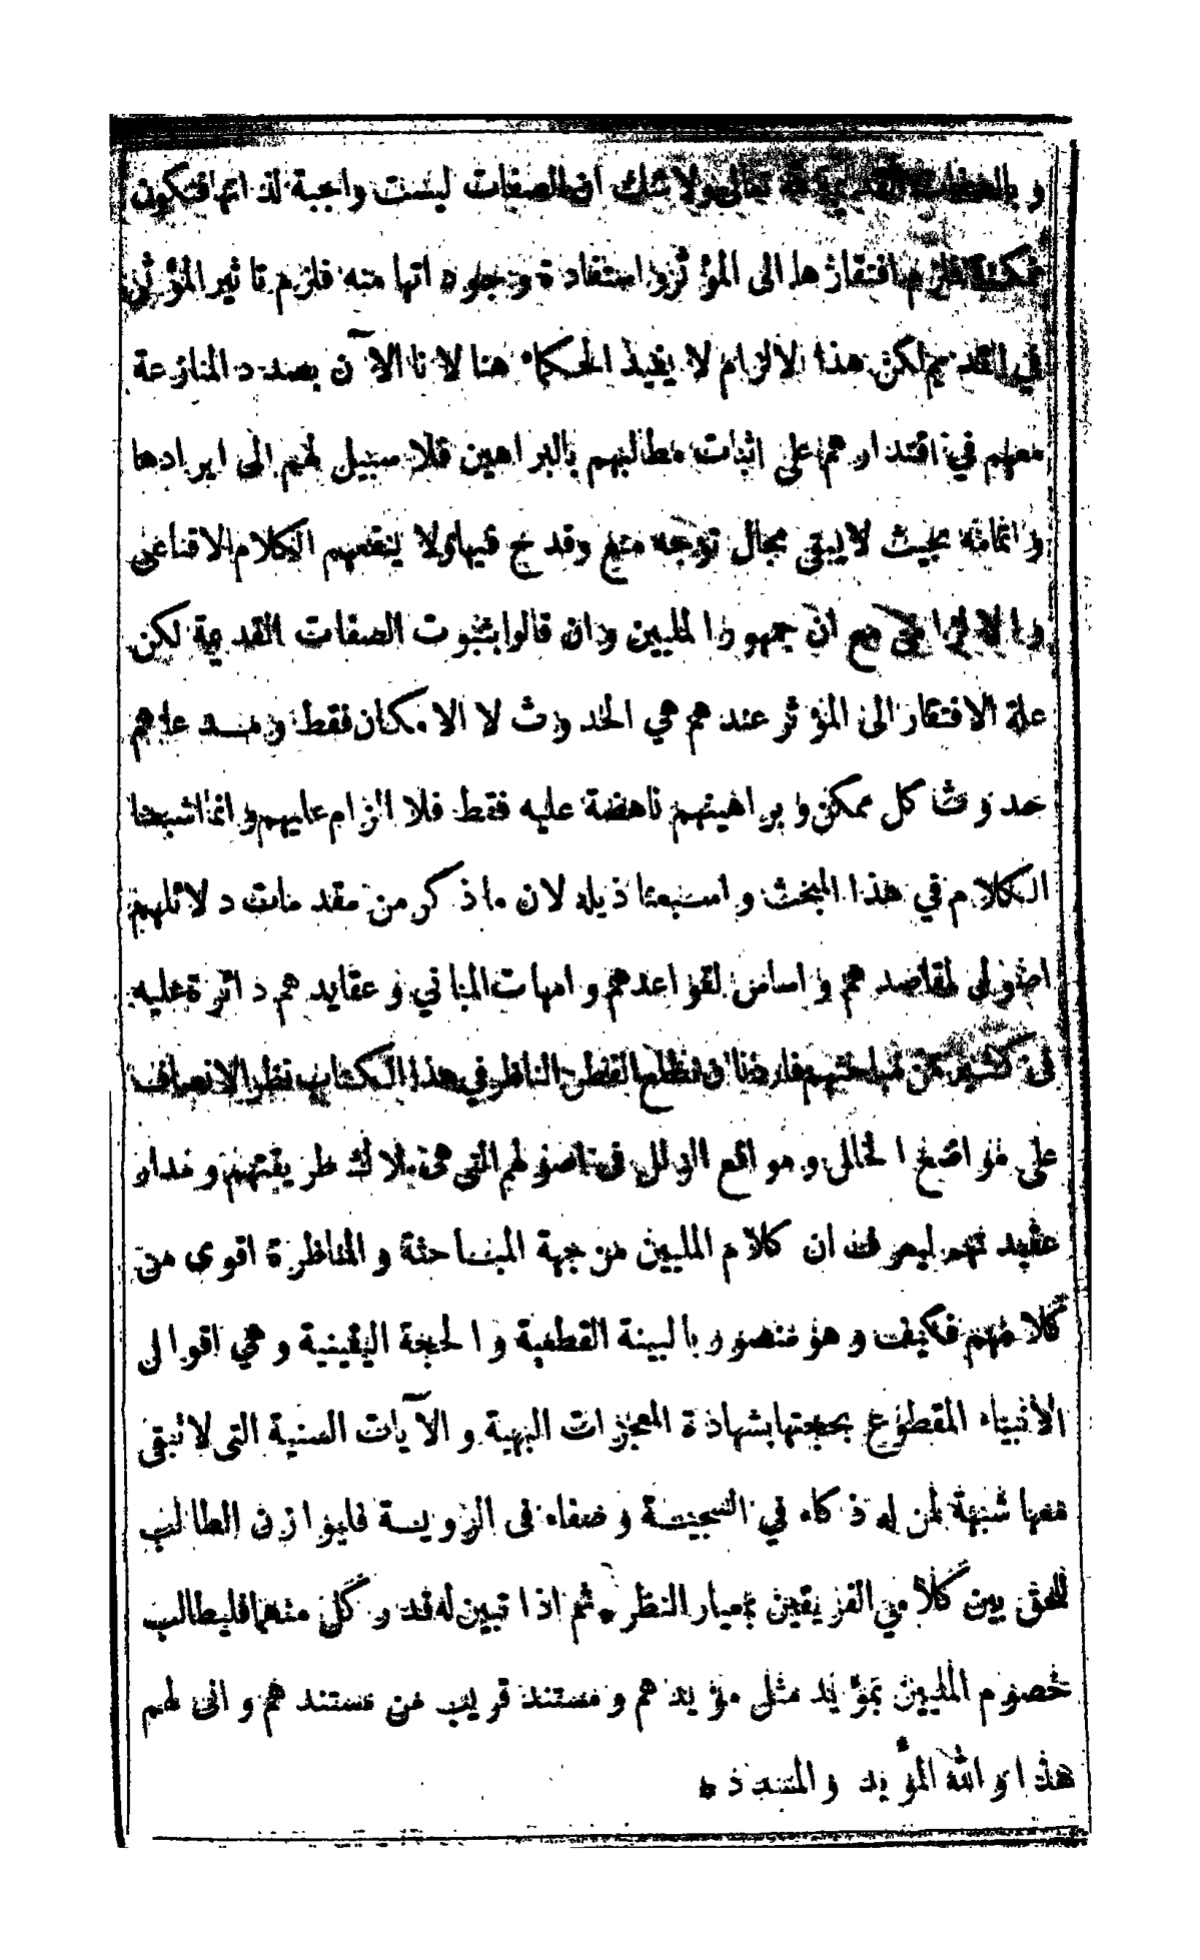 و بالصفات القديمة لله تعالى ولا شك ان الصفات ليست واجبة لذاتها فتكون
ممكنة فلزم افتقارها الى المؤثر واستفادة وجوداتها منه فلزم تاثير المؤثر
في القديم لكن هذا الالزام لا يفيد الحكماء هنا لانا الآن بصدد المنازعة
معهم في اقتدارهم على اثبات مطالبهم بالبراهين فلا سبيل لهم الى ايرادها
و اتمامه بحيث لا يبقى مجال توجه منع وقدح فيها ولا ينفعهم الكلام الاقناعى
و الالزامى مع ان جمهور المليين و ان قالوا بثبوت الصفات القديمة لكن
علة الافتقار الى المؤثر عندهم هي الحدوث لا الامكان فقط و مدعاهم
حدوث كل ممكن و براهينهم ناهضة عليه فقط فلا الزام عليهم و انما اشبعنا
الكلام في هذا المبحث و اسبغنا ذيله لان ما ذكر من مقدمات دلائلهم
اصول لمقاصدهم و اساس لقواعدهم و امهات المبانى و عقايدهم دائرة عليه
فى كثير من مباحثهم فاردنا ان نطلع الفطن الناظر في هذا الكتاب نظر الانصاف
على مواضع الخلل و مواقع الزلل فى اصولهم التى هى ملاك طريقتهم و مدار
عقيدتهم ليعرف ان كلام المليين من جهة المباحثة و المناظرة اقوى من
كلامهم فكيف و هو منصور بالبينة القطعية و الحجة اليقينية و هي اقوال
الانبياء المقطوع بحجتها بشهادة المعجزات البهية و الآيات السنية التى لا تبقى
معها شبهة لمن له ذكاء في السجية و صفاء فى الروية فليوازن الطالب
للحق بين كلامي الفريقين بمعيار النظر * ثم اذا تبين له قدر كل منهما فليطالب
خصوم المليين بمؤيد مثل مؤيدهم و مستند قريب من مستندهم و انى لهم
هذا و الله المؤيد و المسدد *